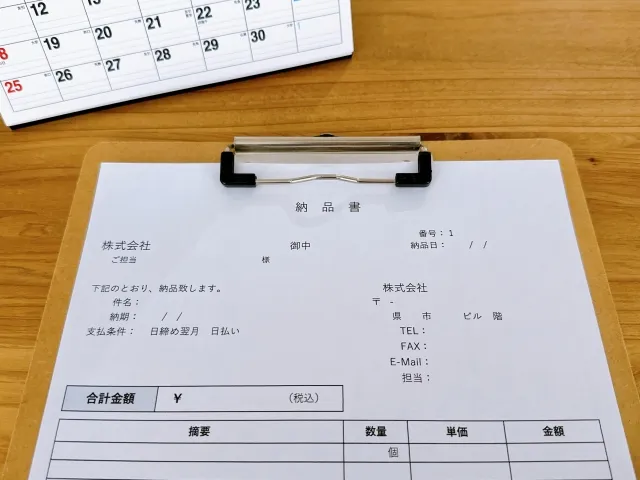 12 13
19 20 21 22 23
25 26 27 28 29 30
納 品 書
番号：1
株式会社 御中 納品日： / /
ご担当 様
下記のとおり、納品致します。 株式会社
件名： 〒 -
納期： / / 県 市 ビル 階
支払条件： 日締め翌月 日払い TEL：
FAX：
E-Mail：
担当：
合計金額 ¥ （税込）
摘要 数量 単価 金額
個